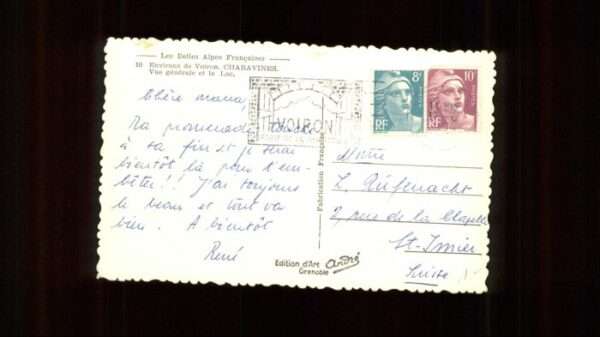 Les Belles Alpes Françaises
10 Environs de Voiron. CHARAVINES.
Vue générale et le Lac.
VOIRON
8F
10F
POSTES
RF
RF
Chère mama,
Ma promenade touche
à sa fin et je serai
bientôt là pour t'em-
bêter!! J'ai toujours
le beau et tout va
bien. A bientôt
René
Fabrication Française
Edition d'Art André
Grenoble
Mme
L. Rüfenacht
2, rue de la Chapelle
St-Imier
Suisse